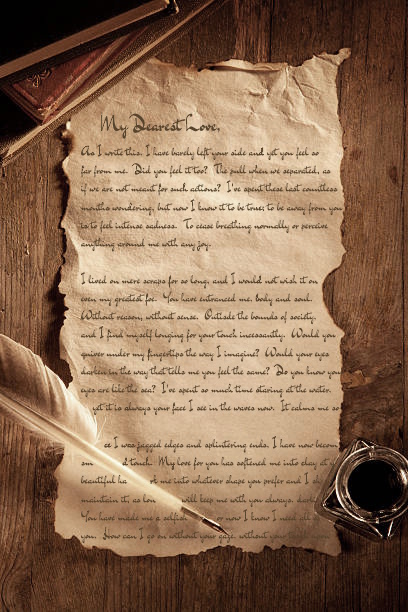 My Dearest Love,
As I write this, I have barely left your side and yet you feel so
far from me. Did you feel it too? The pull when we separated, as
if we are not meant for such actions? I've spent these last countless
months wondering, but now I know it to be true; to be away from you
is to feel intense sadness. To cease breathing normally or perceive
anything around me with any joy.
I lived on mere scraps for so long, and I would not wish it on
even my greatest foe. You have entranced me, body and soul.
Without reason, without sense. Outside the bounds of society,
and I find myself longing for your touch incessantly. Would you
quiver under my fingertips the way I imagine? Would your eyes
darken in the way that tells me you feel the same? Do you know you
eyes are like the sea? I've spent so much time staring at the water,
yet it is always your face I see in the waves now. It calms me so
I was jagged edges and splintering ends. I have now becom
touch. My love for you has softened me into clay
beautiful me into whatever shape you prefer and I
maintain it, as will keep me with you always,
You have made me a selfish now I know I need all
you. How can I go on without your gaze, without your